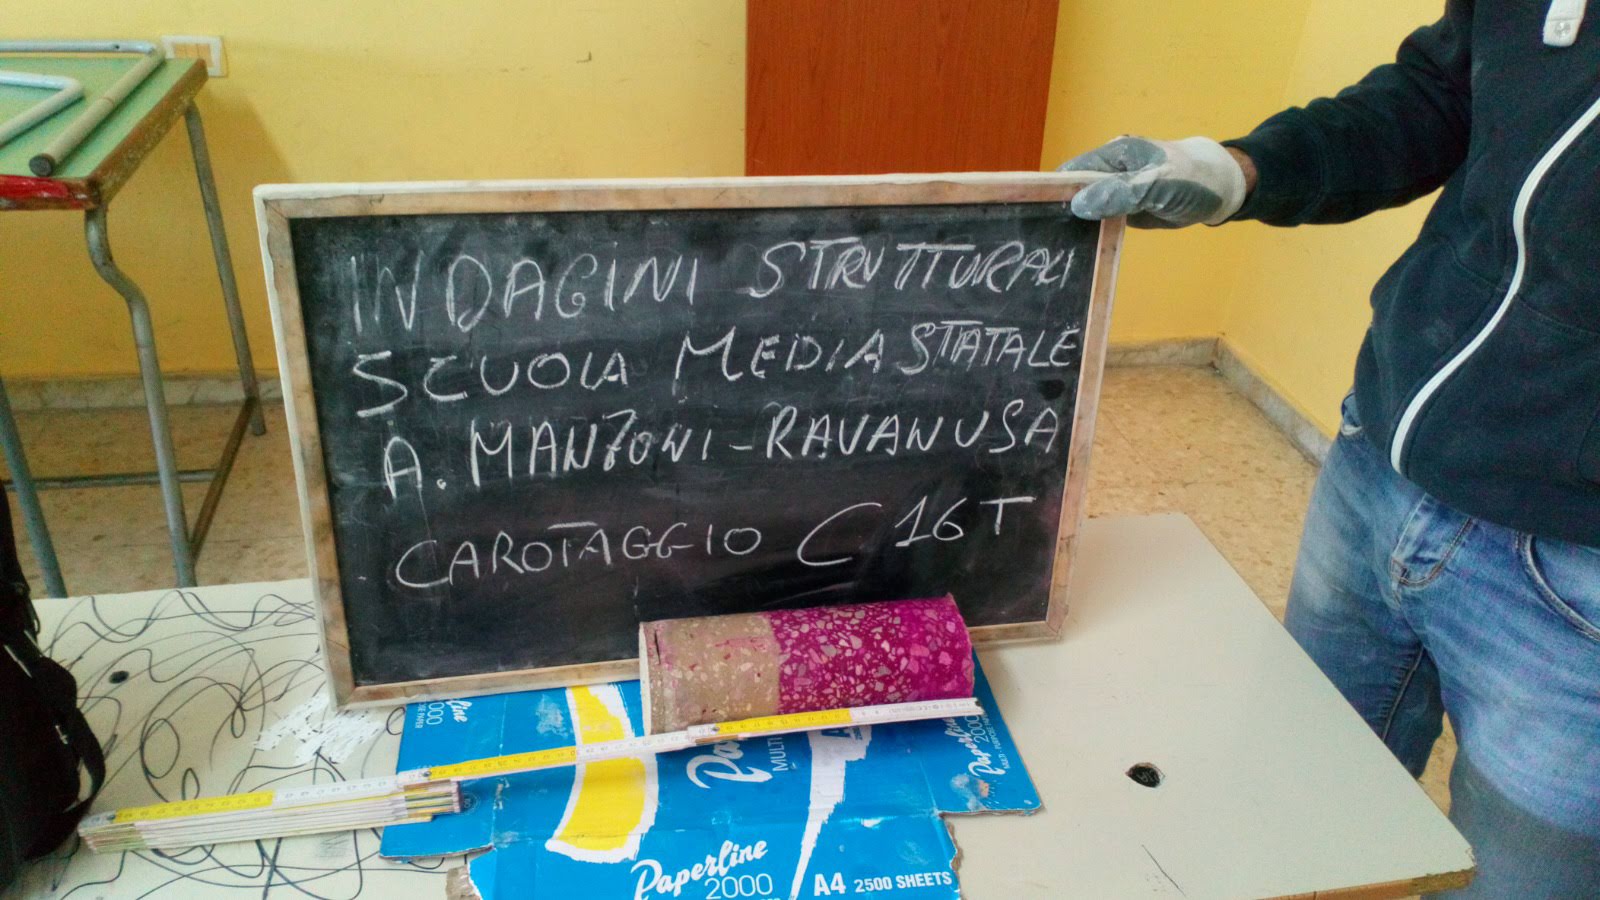 INDAGINI STRUTTURALI
SCUOLA MEDIA STATALE
A. MANZONI - RAVANUSA
CAROTAGGIO C 16 T
Paperline
2000
A4 2500 SHEETS
2000
MULTI
Paperline
200